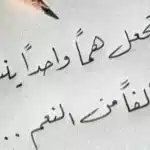 تجعل هماً واحداً
ألفاً من النعم ..